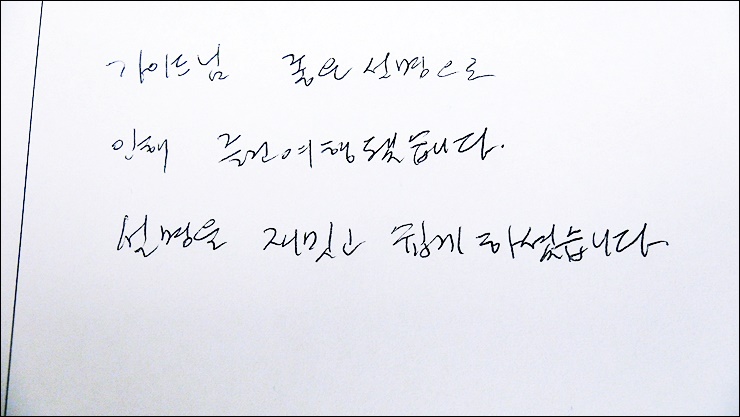 가이드님 좋은 설명으로
인해 즐건여행됐습니다.
설명을 재밋고 쉽게 하셨습니다.